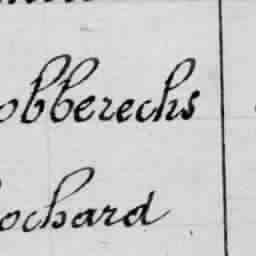 obberechs
ochard